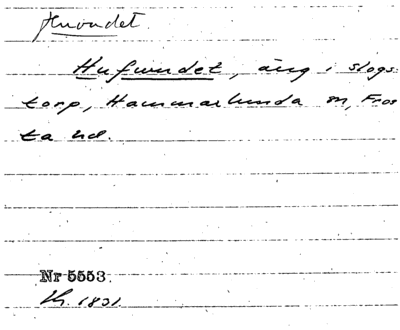 Huvudet.
Hufwudet, äng i Slogs-
torp, Hammarlunda sn, Fros
ta hd.
Nr 5553.
1831